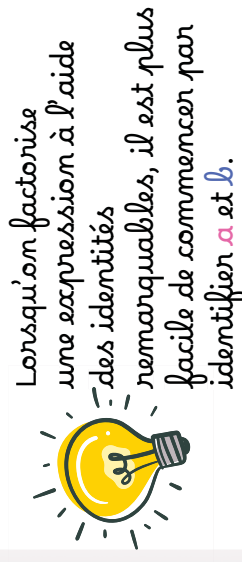 Lorsqu'on factorise
une expression à l'aide
des identités
remarquables, il est plus
facile de commencer par
identifier a et b.